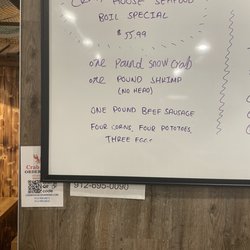 HOUSE SEAFOOD
BOIL SPECIAL
$55.99
one pound snow crab
one POUND SHRIMP
(NO HEAD)
ONE POUND BEEF SAUSAGE
FOUR CORNS, FOUR POTOTOES,
THREE EGGS
Crab
912-695-0090